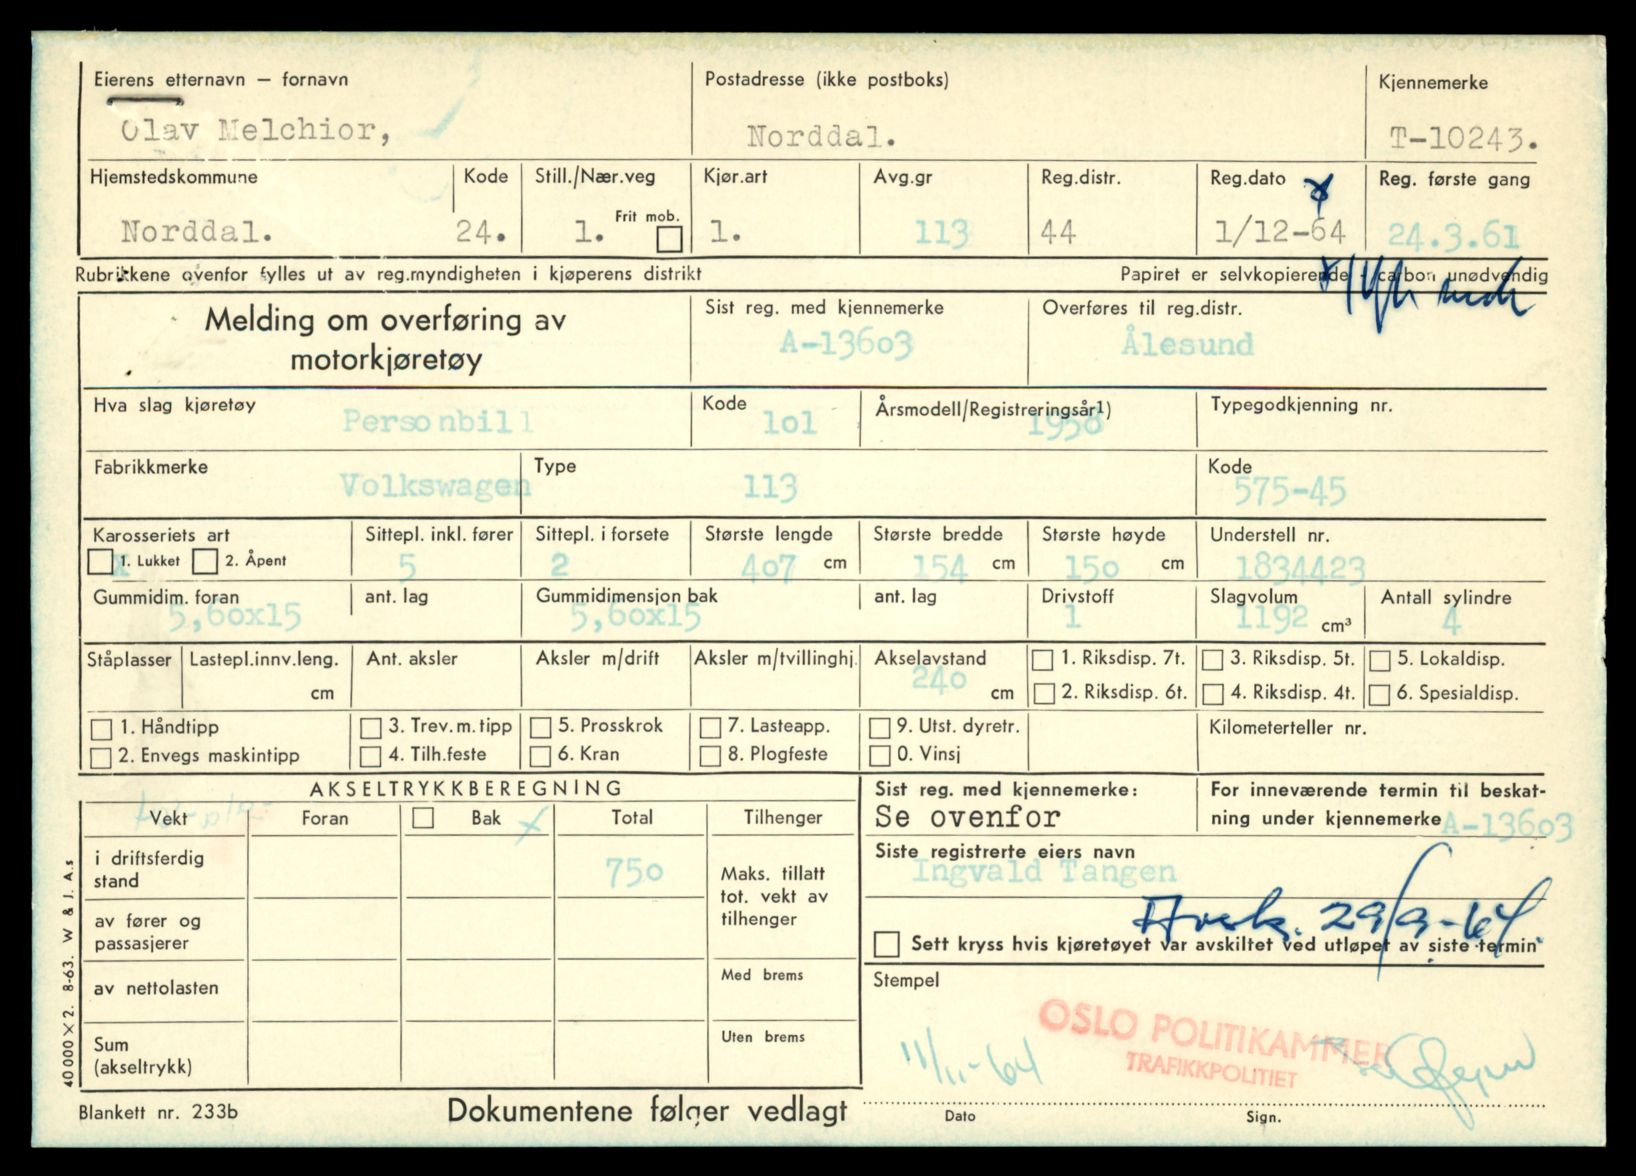 Eierens etternavn — fornavn
Postadresse (ikke postboks)
Kjennemerke
Olav Melchior,
Norddal.
T-10243.
Hjemstedskommune
Kode
Still./Nær.veg
Kjør.art
Avg.gr
Reg.distr.
Reg.dato
Reg. første gang
Norddal.
24.
1.
Frit mob.
1.
113
44
1/12-64
24.3.61
Rubrikkene ovenfor fylles ut av reg.myndigheten i kjøperens distrikt
Papiret er selvkopierende - carbon unødvendig
Melding om overføring av
motorkjøretøy
Sist reg. med kjennemerke
A-13603
Overføres til reg.distr.
Ålesund
Hva slag kjøretøy
Personbill
Kode
101
Årsmodell/Registreringsår1)
1958
Typegodkjenning nr.
Fabrikkmerke
Volkswagen
Type
113
Kode
575-45
Karosseriets art
X 1. Lukket 2. Åpent
Sittepl. inkl. fører
5
Sittepl. i forsete
2
Største lengde
407 cm
Største bredde
154 cm
Største høyde
150 cm
Understell nr.
1834423
Gummidim. foran
5,60x15
ant. lag
Gummidimensjon bak
5,60x15
ant. lag
Drivstoff
1
Slagvolum
1192 cm³
Antall sylindre
4
Ståplasser
Lastepl.innv.leng.
cm
Ant. aksler
Aksler m/drift
Aksler m/tvillinghj.
Akselavstand
240 cm
1. Riksdisp. 7t.
2. Riksdisp. 6t.
3. Riksdisp. 5t.
4. Riksdisp. 4t.
5. Lokaldisp.
6. Spesialdisp.
1. Håndtipp
2. Envegs maskintipp
3. Trev.m.tipp
4. Tilh.feste
5. Prosskrok
6. Kran
7. Lasteapp.
8. Plogfeste
9. Utst. dyretr.
0. Vinsj
Kilometerteller nr.
AKSELTRYKKBEREGNING
Vekt
Foran
Bak
Total
Tilhenger
i driftsferdig
stand
750
Maks. tillatt
tot. vekt av
tilhenger
av fører og
passasjerer
Med brems
av nettolasten
Uten brems
Sum
(akseltrykk)
Sist reg. med kjennemerke:
Se ovenfor
For inneværende termin til beskat-
ning under kjennemerke A-13603
Siste registrerte eiers navn
Ingvald Tangen
Avsk. 29/9-64
Sett kryss hvis kjøretøyet var avskiltet ved utløpet av siste termin
Stempel
OSLO POLITIKAMMER
TRAFIKKPOLITIET
11/11-64
Dato
Sign.
40000 X 2. 8-63. W & J. A.s
Blankett nr. 233b
Dokumentene følger vedlagt